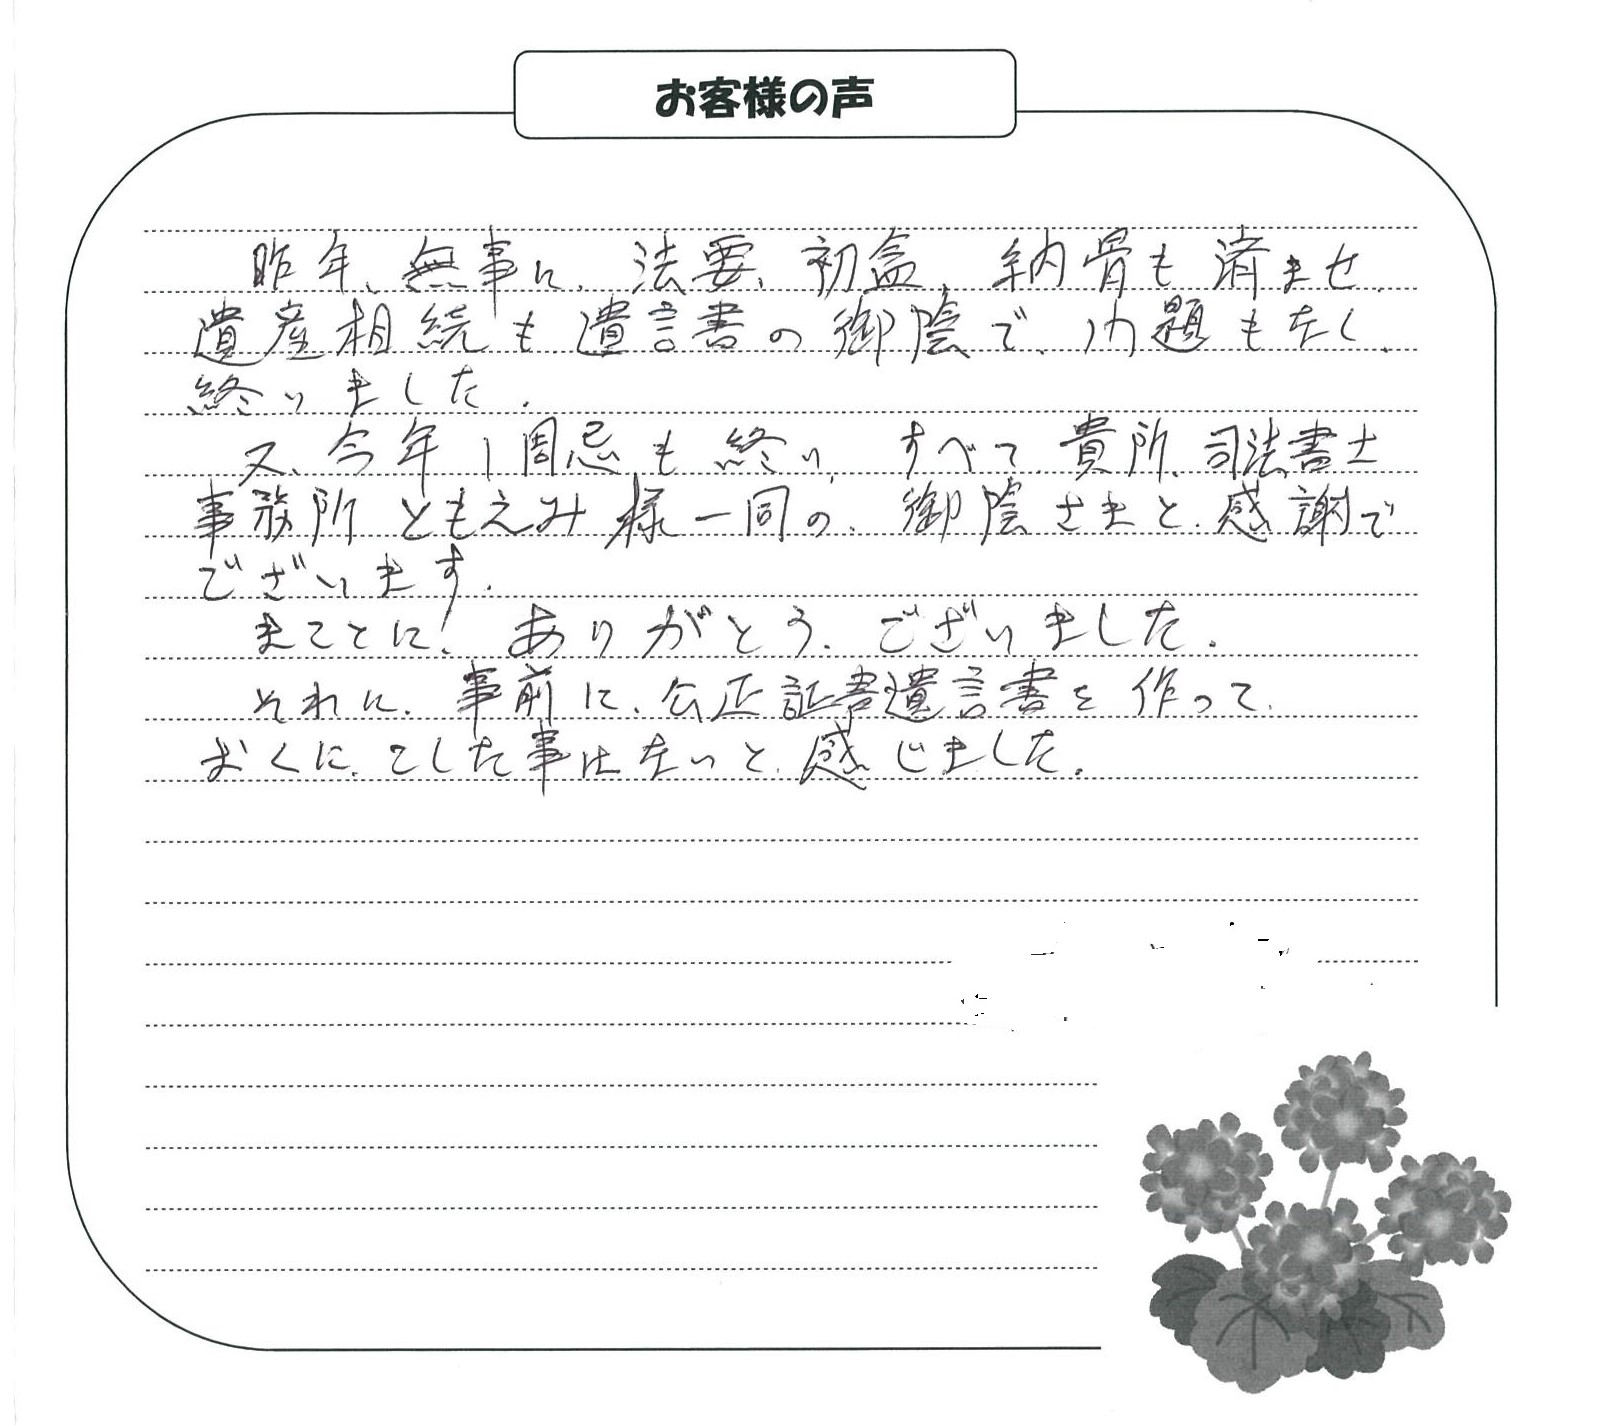 お客様の声
昨年、無事に、法要、初盆、納骨も済ませ、
遺産相続も遺言書の御陰で、問題もなく、
終りました。
又、今年1周忌も終り、すべて貴所、司法書士
事務所ともえみ様一同の、御陰さまと、感謝で
でございます。
まことに、ありがとう、ございました。
それに、事前に、公正証書遺言書を作って、
おくに、こした事はないと、感じました。